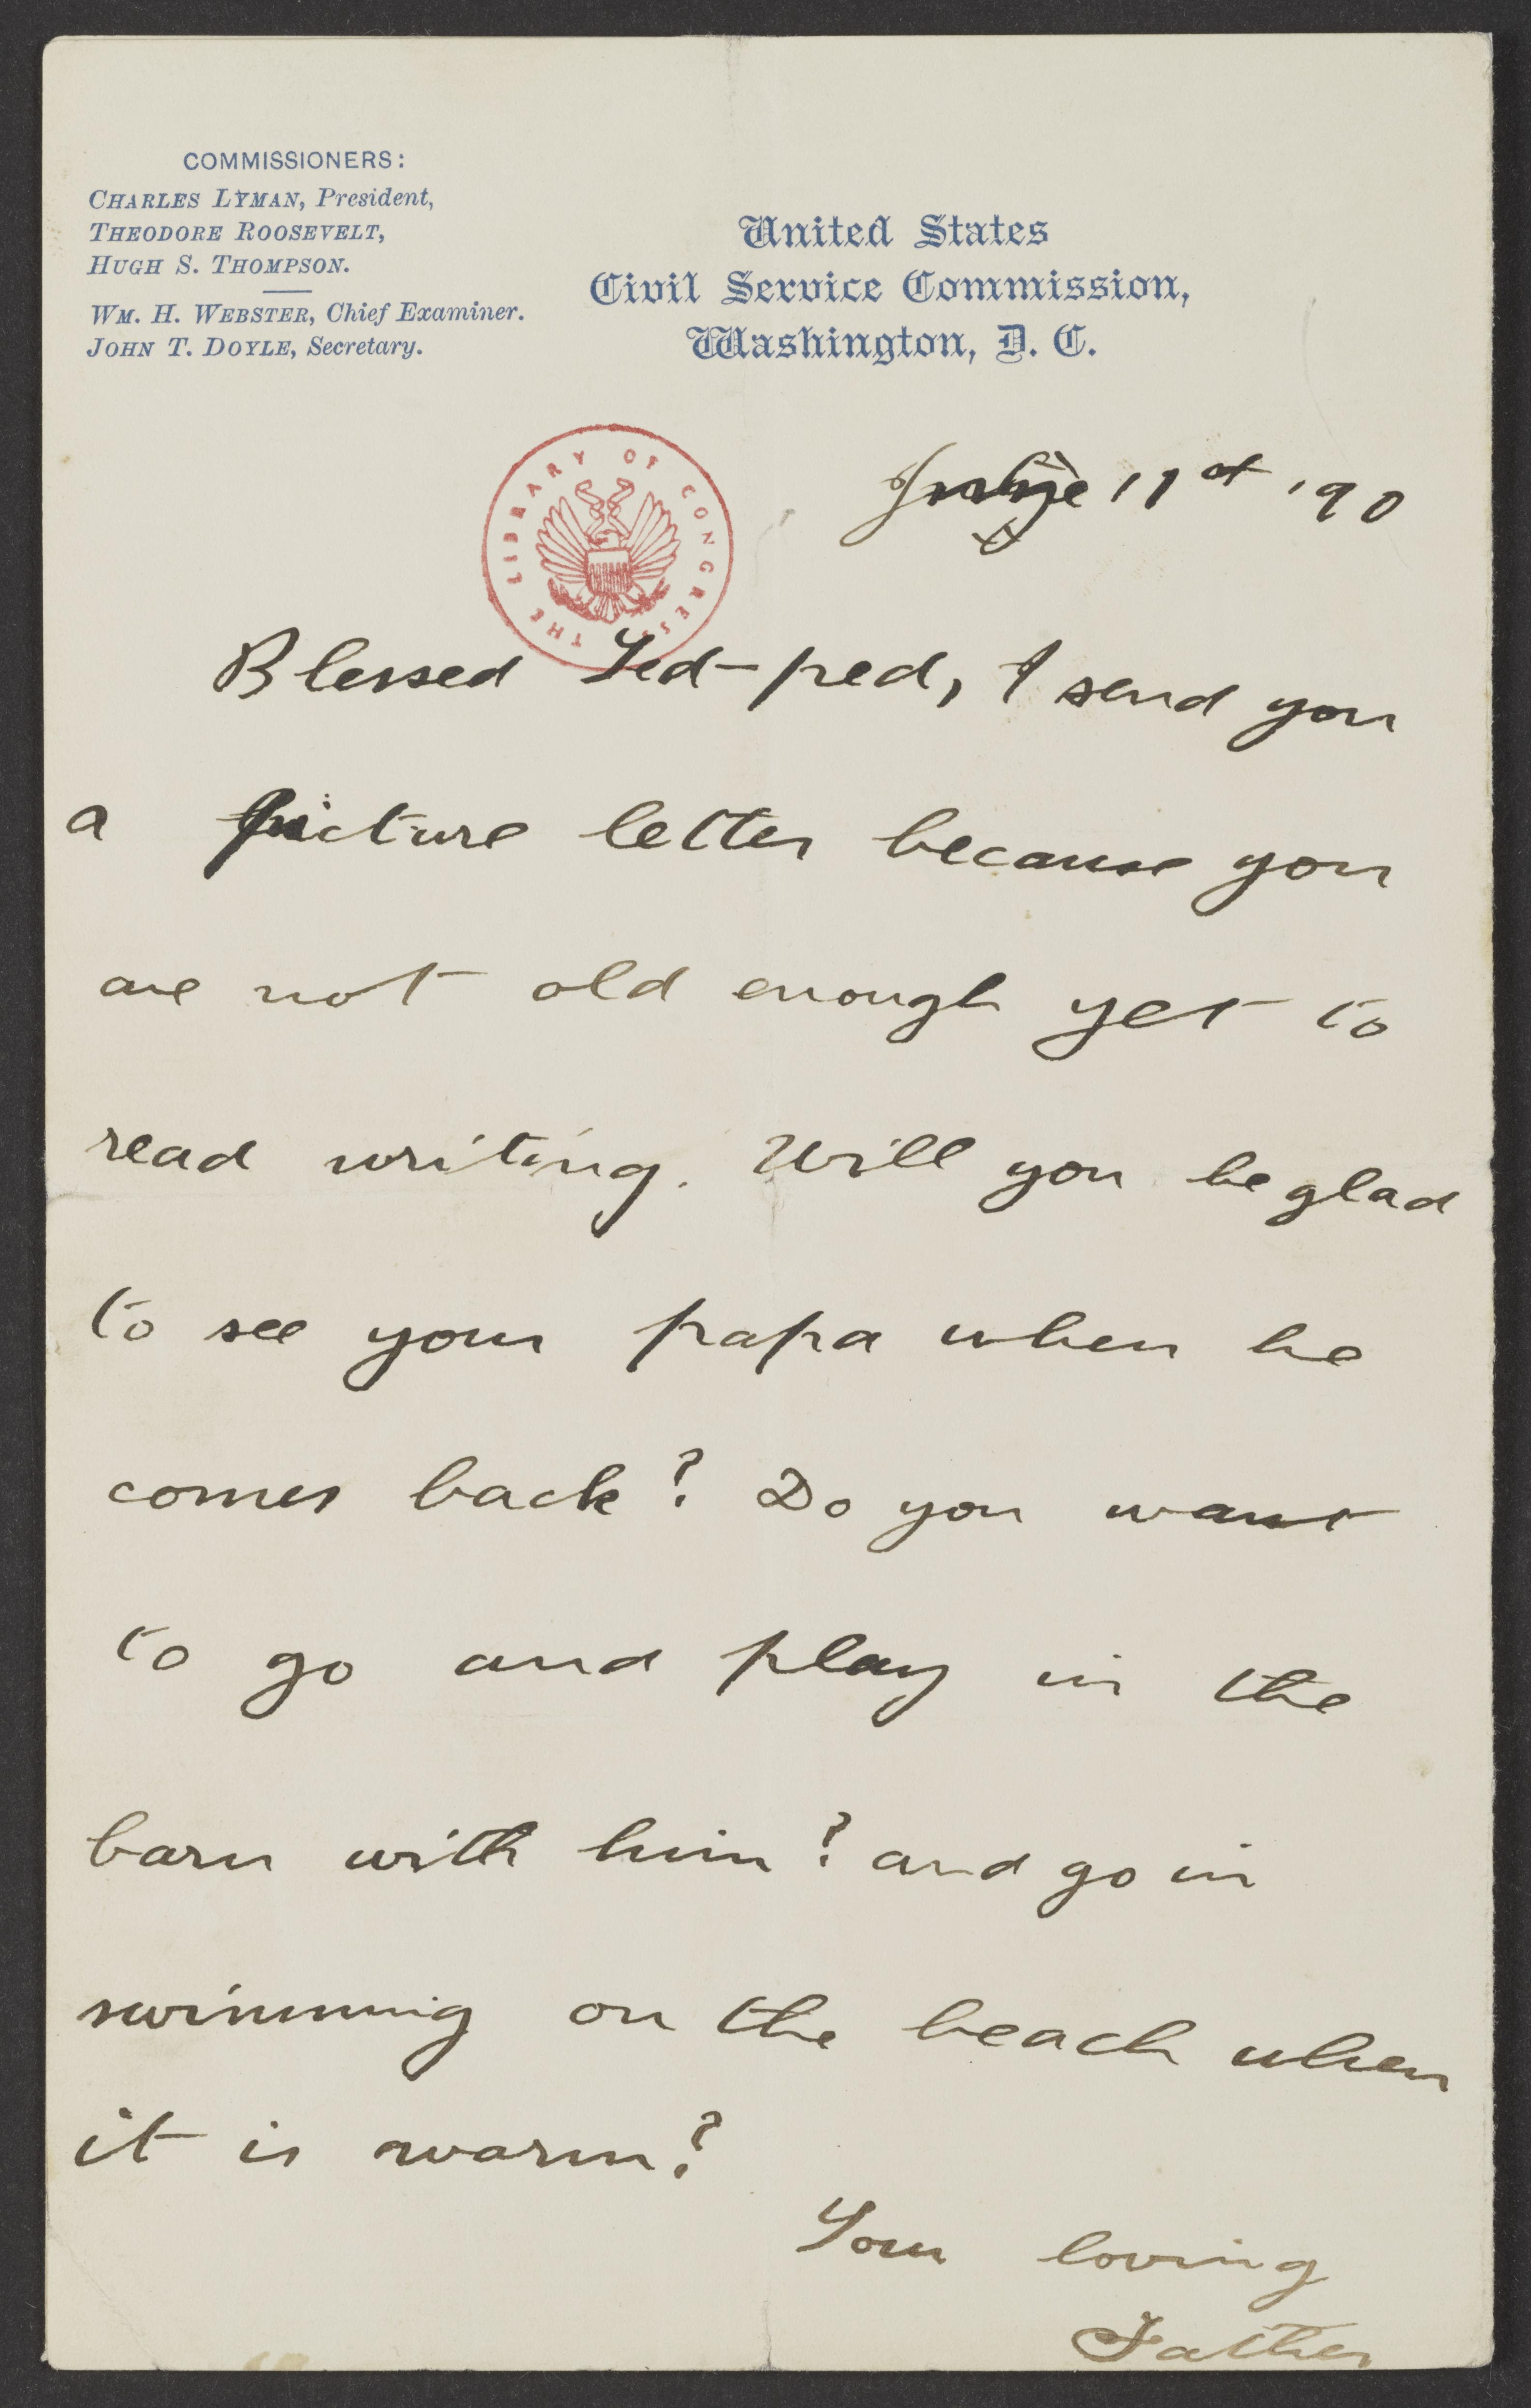 COMMISSIONERS:
CHARLES LYMAN, President,
THEODORE ROOSEVELT,
HUGH S. THOMPSON.
WM. H. WEBSTER, Chief Examiner.
JOHN T. DOYLE, Secretary.
United States
Civil Service Commission,
Washington, D. C.
THE LIBRARY OF CONGRESS
11st '90
Blessed Ted-ped, I send you
a picture letter because you
are not old enough yet to
read writing. Will you be glad
to see your papa when he
comes back? Do you want
to go and play in the
barn with him? and go in
swimming on the beach when
it is warm?
Your loving
Father